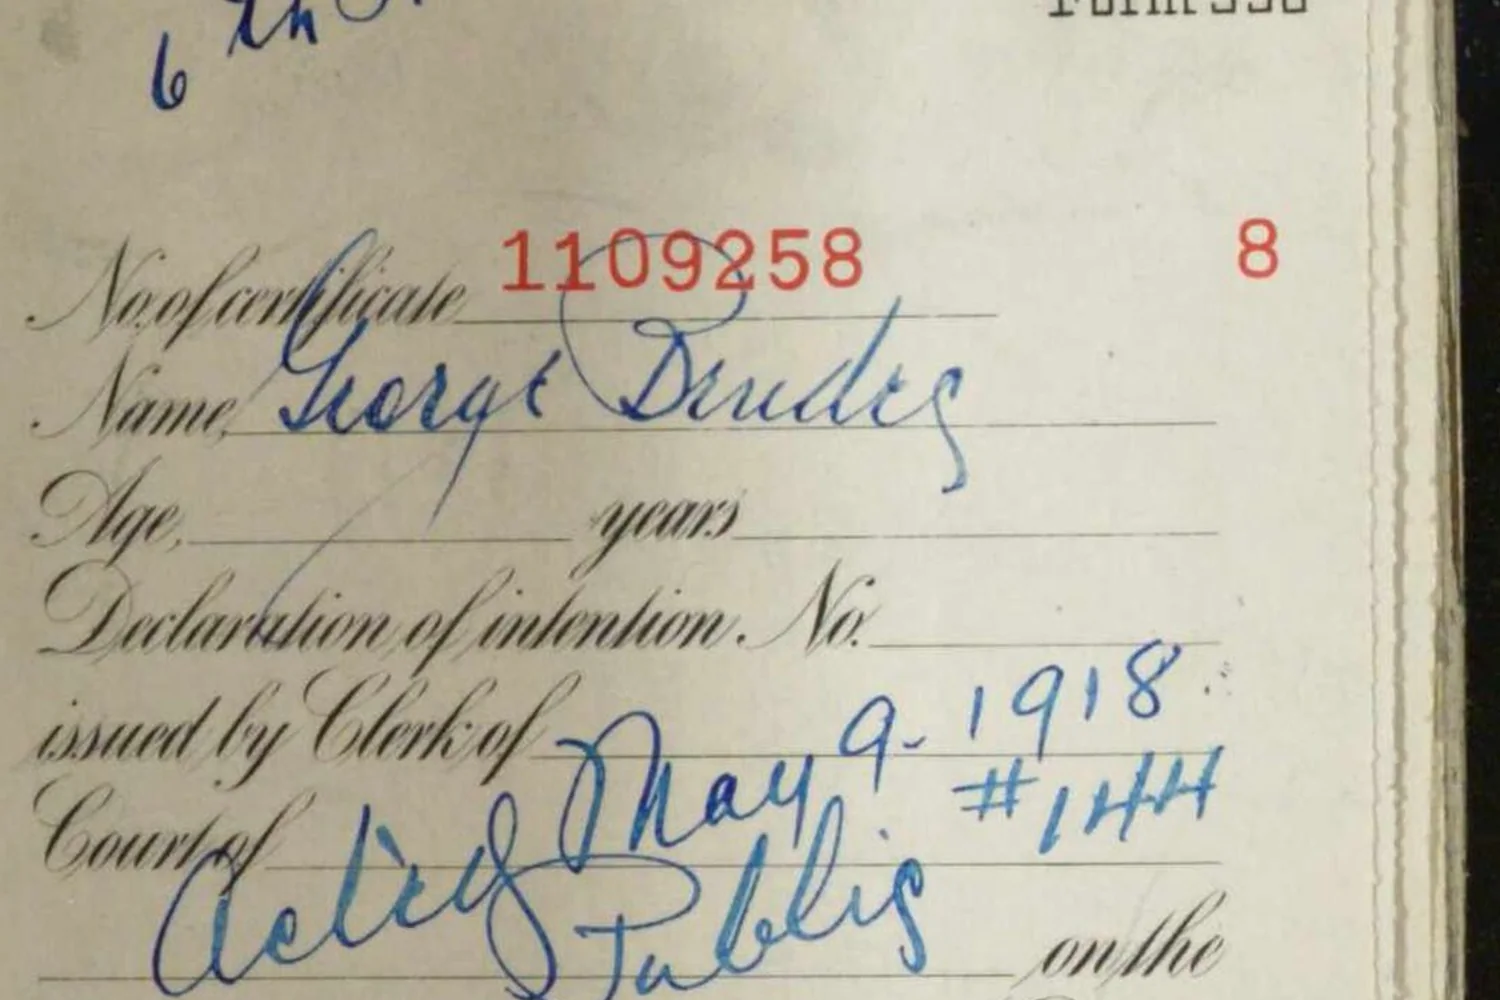 6 th
No. of certificate 1109258 8
Name, George
Age, years
Declaration of intention No.
issued by Clerk of May 9 - 1918
Court of #144
Act of Public
on the